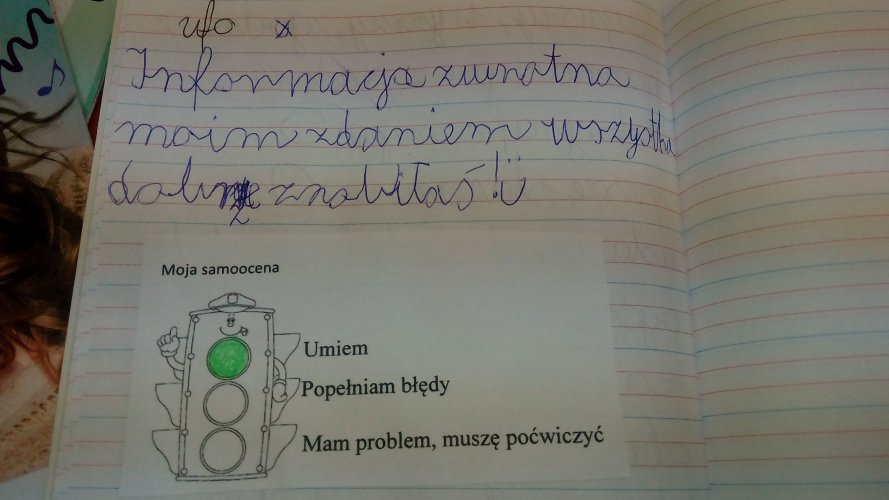 ufo x
Informacja zwrotna
moim zdaniem wszystko
dobrze zrobiłaś!
Moja samoocena
Umiem
Popełniam błędy
Mam problem, muszę poćwiczyć